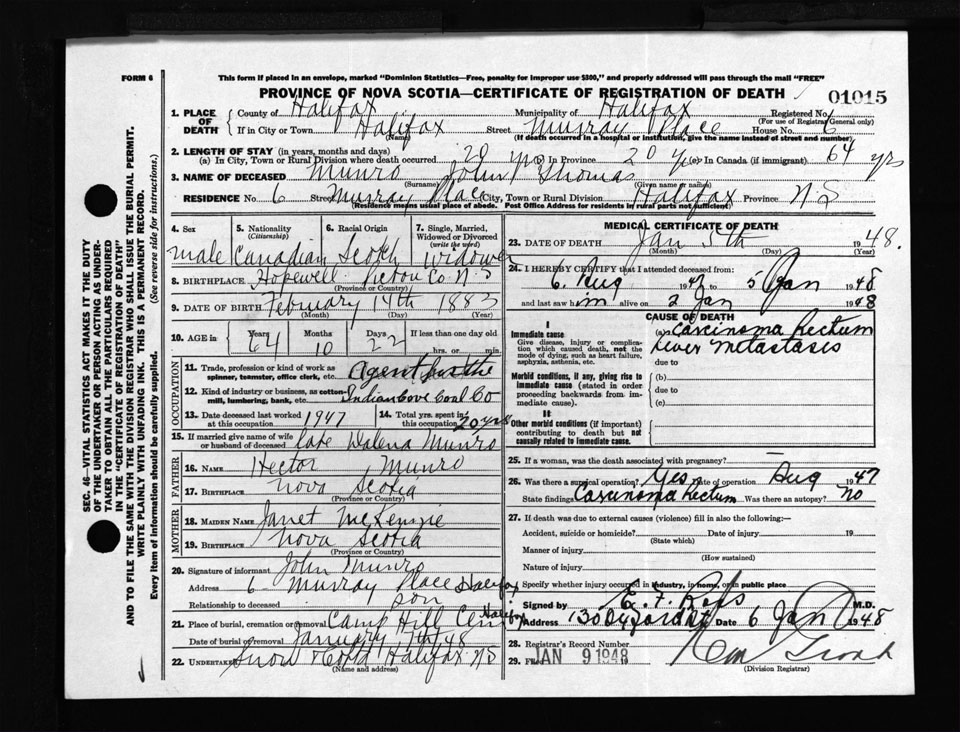 FORM 6
This form if placed in an envelope, marked "Dominion Statistics—Free, penalty for improper use $300," and properly addressed will pass through the mail "FREE"
PROVINCE OF NOVA SCOTIA—CERTIFICATE OF REGISTRATION OF DEATH
01015
1. PLACE OF DEATH
County of Halifax Municipality of Halifax Registered No.
(For use of Registrar General only)
If in City or Town Halifax Street Murray Place House No. 6
(Name) (If death occurred in a hospital or institution, give the name instead of street and number)
2. LENGTH OF STAY (in years, months and days)
(a) In City, Town or Rural Division where death occurred 20 yrs (b) In Province 20 yrs (c) In Canada (if immigrant) 64 yrs
3. NAME OF DECEASED Munro John Thomas
(Surname) (Given name or names)
RESIDENCE No 6 Street Murray Place City, Town or Rural Division Halifax Province NS
(Residence means usual place of abode. Post Office Address for residents in rural parts not sufficient)
4. Sex 5. Nationality (Citizenship) 6. Racial Origin 7. Single, Married, Widowed or Divorced (write the word)
male Canadian Scotch widower
8. BIRTHPLACE Hopewell Pictou Co. N.S
(Province or Country)
9. DATE OF BIRTH February 14th 1883
(Month) (Day) (Year)
10. AGE in Years Months Days If less than one day old
64 10 22 hrs. or min.
OCCUPATION
11. Trade, profession or kind of work as spinner, teamster, office clerk, etc. Agent for the
12. Kind of industry or business, as cotton-mill, lumbering, bank, etc. Indian Cove Coal Co
13. Date deceased last worked at this occupation 1947
14. Total yrs. spent in this occupation 20 yrs
15. If married give name of wife or husband of deceased late Walena Munro
FATHER
16. NAME Hector Munro
17. BIRTHPLACE Nova Scotia
(Province or Country)
MOTHER
18. MAIDEN NAME Janet McKenzie
19. BIRTHPLACE Nova Scotia
(Province or Country)
20. Signature of informant John Munro
Address 6 Murray Place Halifax
Relationship to deceased son
21. Place of burial, cremation or removal Camp Hill Cem Halifax
Date of burial or removal January 7th 48
22. UNDERTAKER Snow & Co Ltd Halifax NS
(Name and address)
MEDICAL CERTIFICATE OF DEATH
23. DATE OF DEATH Jan 5th 1948.
(Month) (Day) (Year)
24. I HEREBY CERTIFY that I attended deceased from:
6 Aug 1947 to 5 Jan 1948
and last saw him alive on 2 Jan 1948
CAUSE OF DEATH
I
Immediate cause
Give disease, injury or complication which caused death, not the mode of dying, such as heart failure, asphyxia, asthenia, etc.
(a) Carcinoma Rectum
Liver metastasis
due to
Morbid conditions, if any, giving rise to immediate cause (stated in order proceeding backwards from immediate cause).
(b)
due to
(c)
II
Other morbid conditions (if important) contributing to death but not causally related to immediate cause.
25. If a woman, was the death associated with pregnancy?
26. Was there a surgical operation? Yes Date of operation Aug 1947
State findings Carcinoma Rectum Was there an autopsy? no
27. If death was due to external causes (violence) fill in also the following:—
Accident, suicide or homicide? Date of injury 19
(State which)
Manner of injury
(How sustained)
Nature of injury
Specify whether injury occurred in industry, in home, or in public place
Signed by E. F. Ross M.D.
Address 130 Oxford St Date 6 Jan 1948
28. Registrar's Record Number
29. Filed JAN 9 1948
(Division Registrar)
SEC. 46—VITAL STATISTICS ACT MAKES IT THE DUTY
OF THE UNDERTAKER OR PERSON ACTING AS UNDER-
TAKER TO OBTAIN ALL THE PARTICULARS REQUIRED
IN THE "CERTIFICATE OF REGISTRATION OF DEATH"
AND TO FILE THE SAME WITH THE DIVISION REGISTRAR WHO SHALL ISSUE THE BURIAL PERMIT.
WRITE PLAINLY WITH UNFADING INK. THIS IS A PERMANENT RECORD.
Every item of information should be carefully supplied. (See reverse side for instructions.)